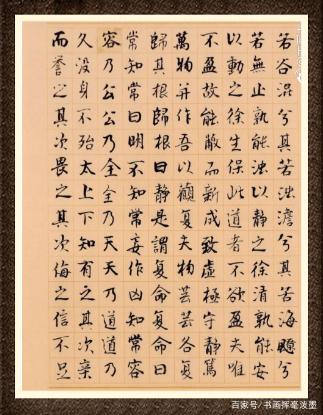 若谷混兮其若浊澹兮其若海飂兮
若無止孰能浊以静之徐清孰能安
以動之徐生保此道者不欲盈夫唯
不盈故能蔽而新成致虚極守静篤
萬物并作吾以觀复夫物芸芸各复
歸其根歸根曰静是謂复命复命曰
常知常曰明不知常妄作凶知常容
容乃公公乃全全乃天天乃道道乃
久没身不殆太上下知有之其次亲
而譽之其次畏之其次侮之信不足
百家号/书画挥毫泼墨